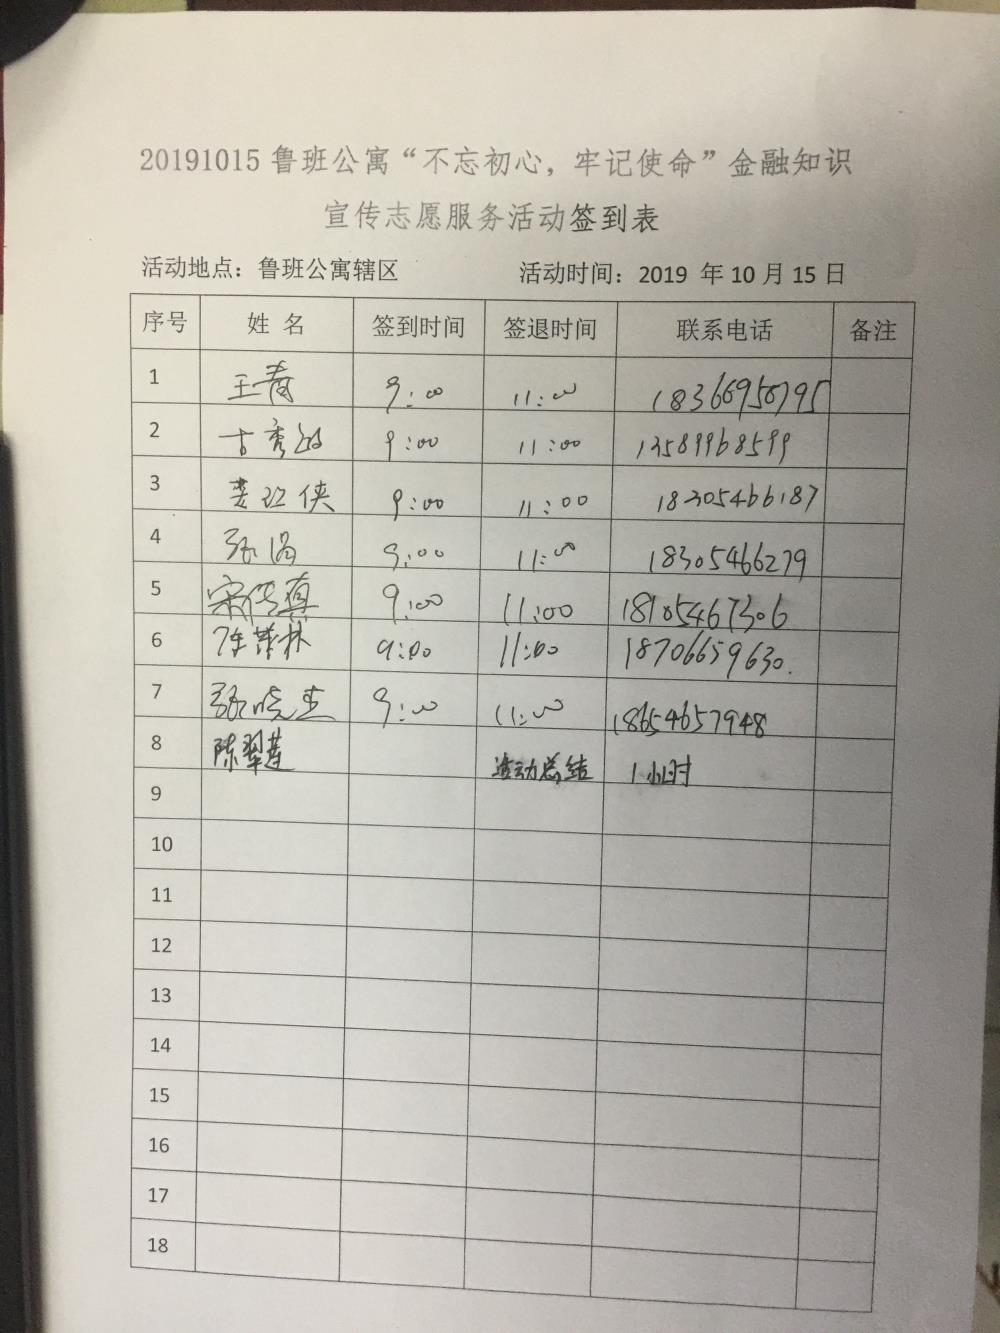 20191015鲁班公寓“不忘初心，牢记使命”金融知识
宣传志愿服务活动签到表
活动地点：鲁班公寓辖区 活动时间：2019 年 10 月 15 日
序号 姓 名 签到时间 签退时间 联系电话 备注
1 王青 9:00 11:00 18366950795
2 古秀 9:00 11:00 13589968599
3 姜红侠 9:00 11:00 18305466187
4 张涓 9:00 11:00 18305466279
5 宋传真 9:00 11:00 18105467306
6 陈华林 9:00 11:00 18706659630.
7 张晓杰 9:00 11:00 18654657948
8 陈翠莲 活动总结 1小时
9
10
11
12
13
14
15
16
17
18